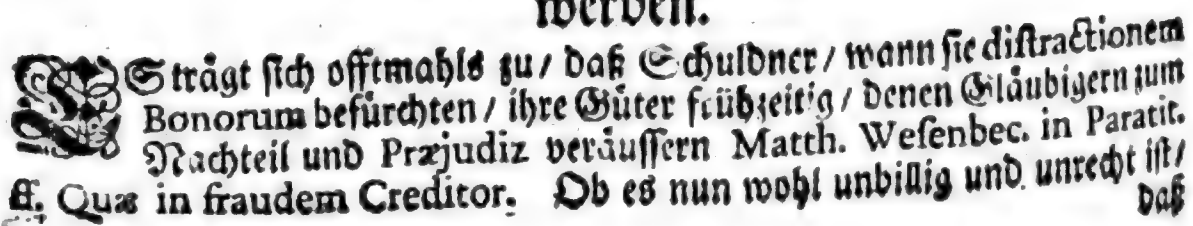 werden.
ES trägt sich offtmahls zu / daß Schuldner / wann sie distractionem
Bonorum befürchten / ihre Güter frühzeitig / denen Gläubigern zum
Nachteil und Præjudiz veräussern Matth. Wesenbec. in Paratit.
ff. Quæ in fraudem Creditor. Ob es nun wohl unbillig und unrecht ist /
daß